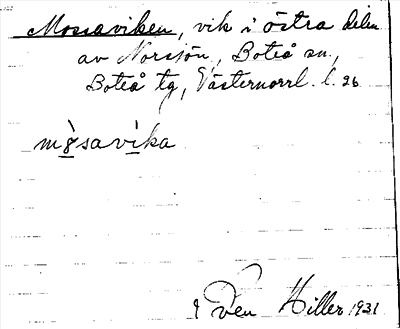 Mossaviken, vik i östra delen
av Norsjön, Boteå sn,
Boteå tg, Västernorrl. l. 26
mȣ̀savìka
Sven Hiller 1931